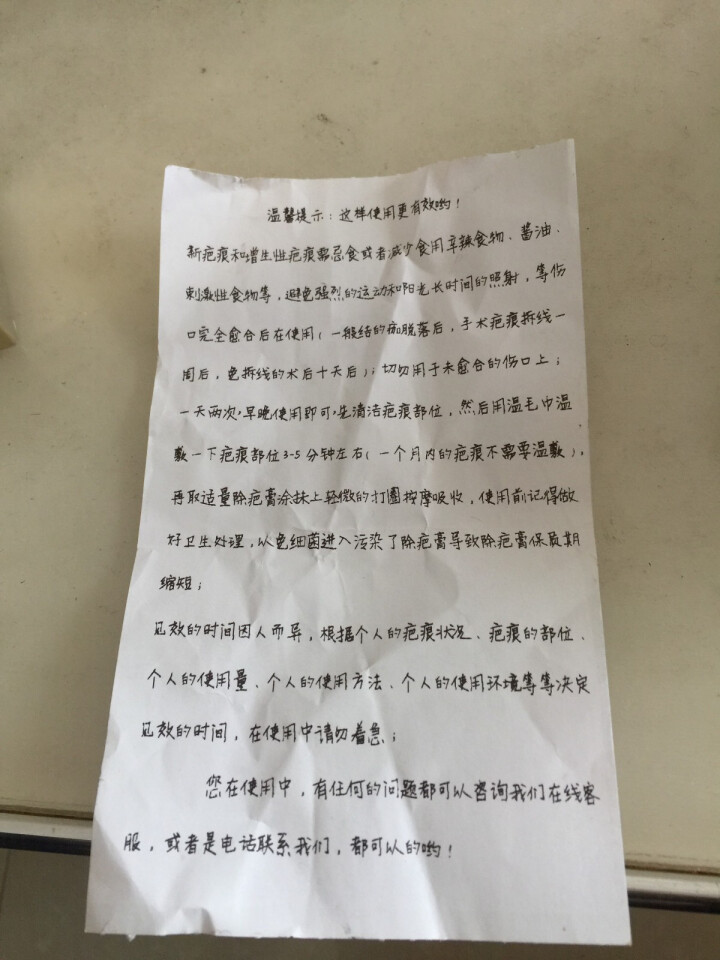 温馨提示：这样使用更有效哟！
新疤痕和增生性疤痕需忌食或者减少食用辛辣食物、酱油、
刺激性食物等，避免强烈的运动和阳光长时间的照射，等伤
口完全愈合后在使用（一般结的痂脱落后，手术疤痕拆线一
周后，免拆线的术后十天后）；切勿用于未愈合的伤口上；
一天两次，早晚使用即可，先清洁疤痕部位，然后用温毛巾温
敷一下疤痕部位3-5分钟左右（一个月内的疤痕不需要温敷），
再取适量除疤膏涂抹上轻微的打圈按摩吸收，使用前记得做
好卫生处理，以免细菌进入污染了除疤膏导致除疤膏保质期
缩短；
见效的时间因人而异，根据个人的疤痕状况、疤痕的部位、
个人的使用量、个人的使用方法、个人的使用环境等等决定
见效的时间，在使用中请勿着急；
您在使用中，有任何的问题都可以咨询我们在线客
服，或者是电话联系我们，都可以的哟！